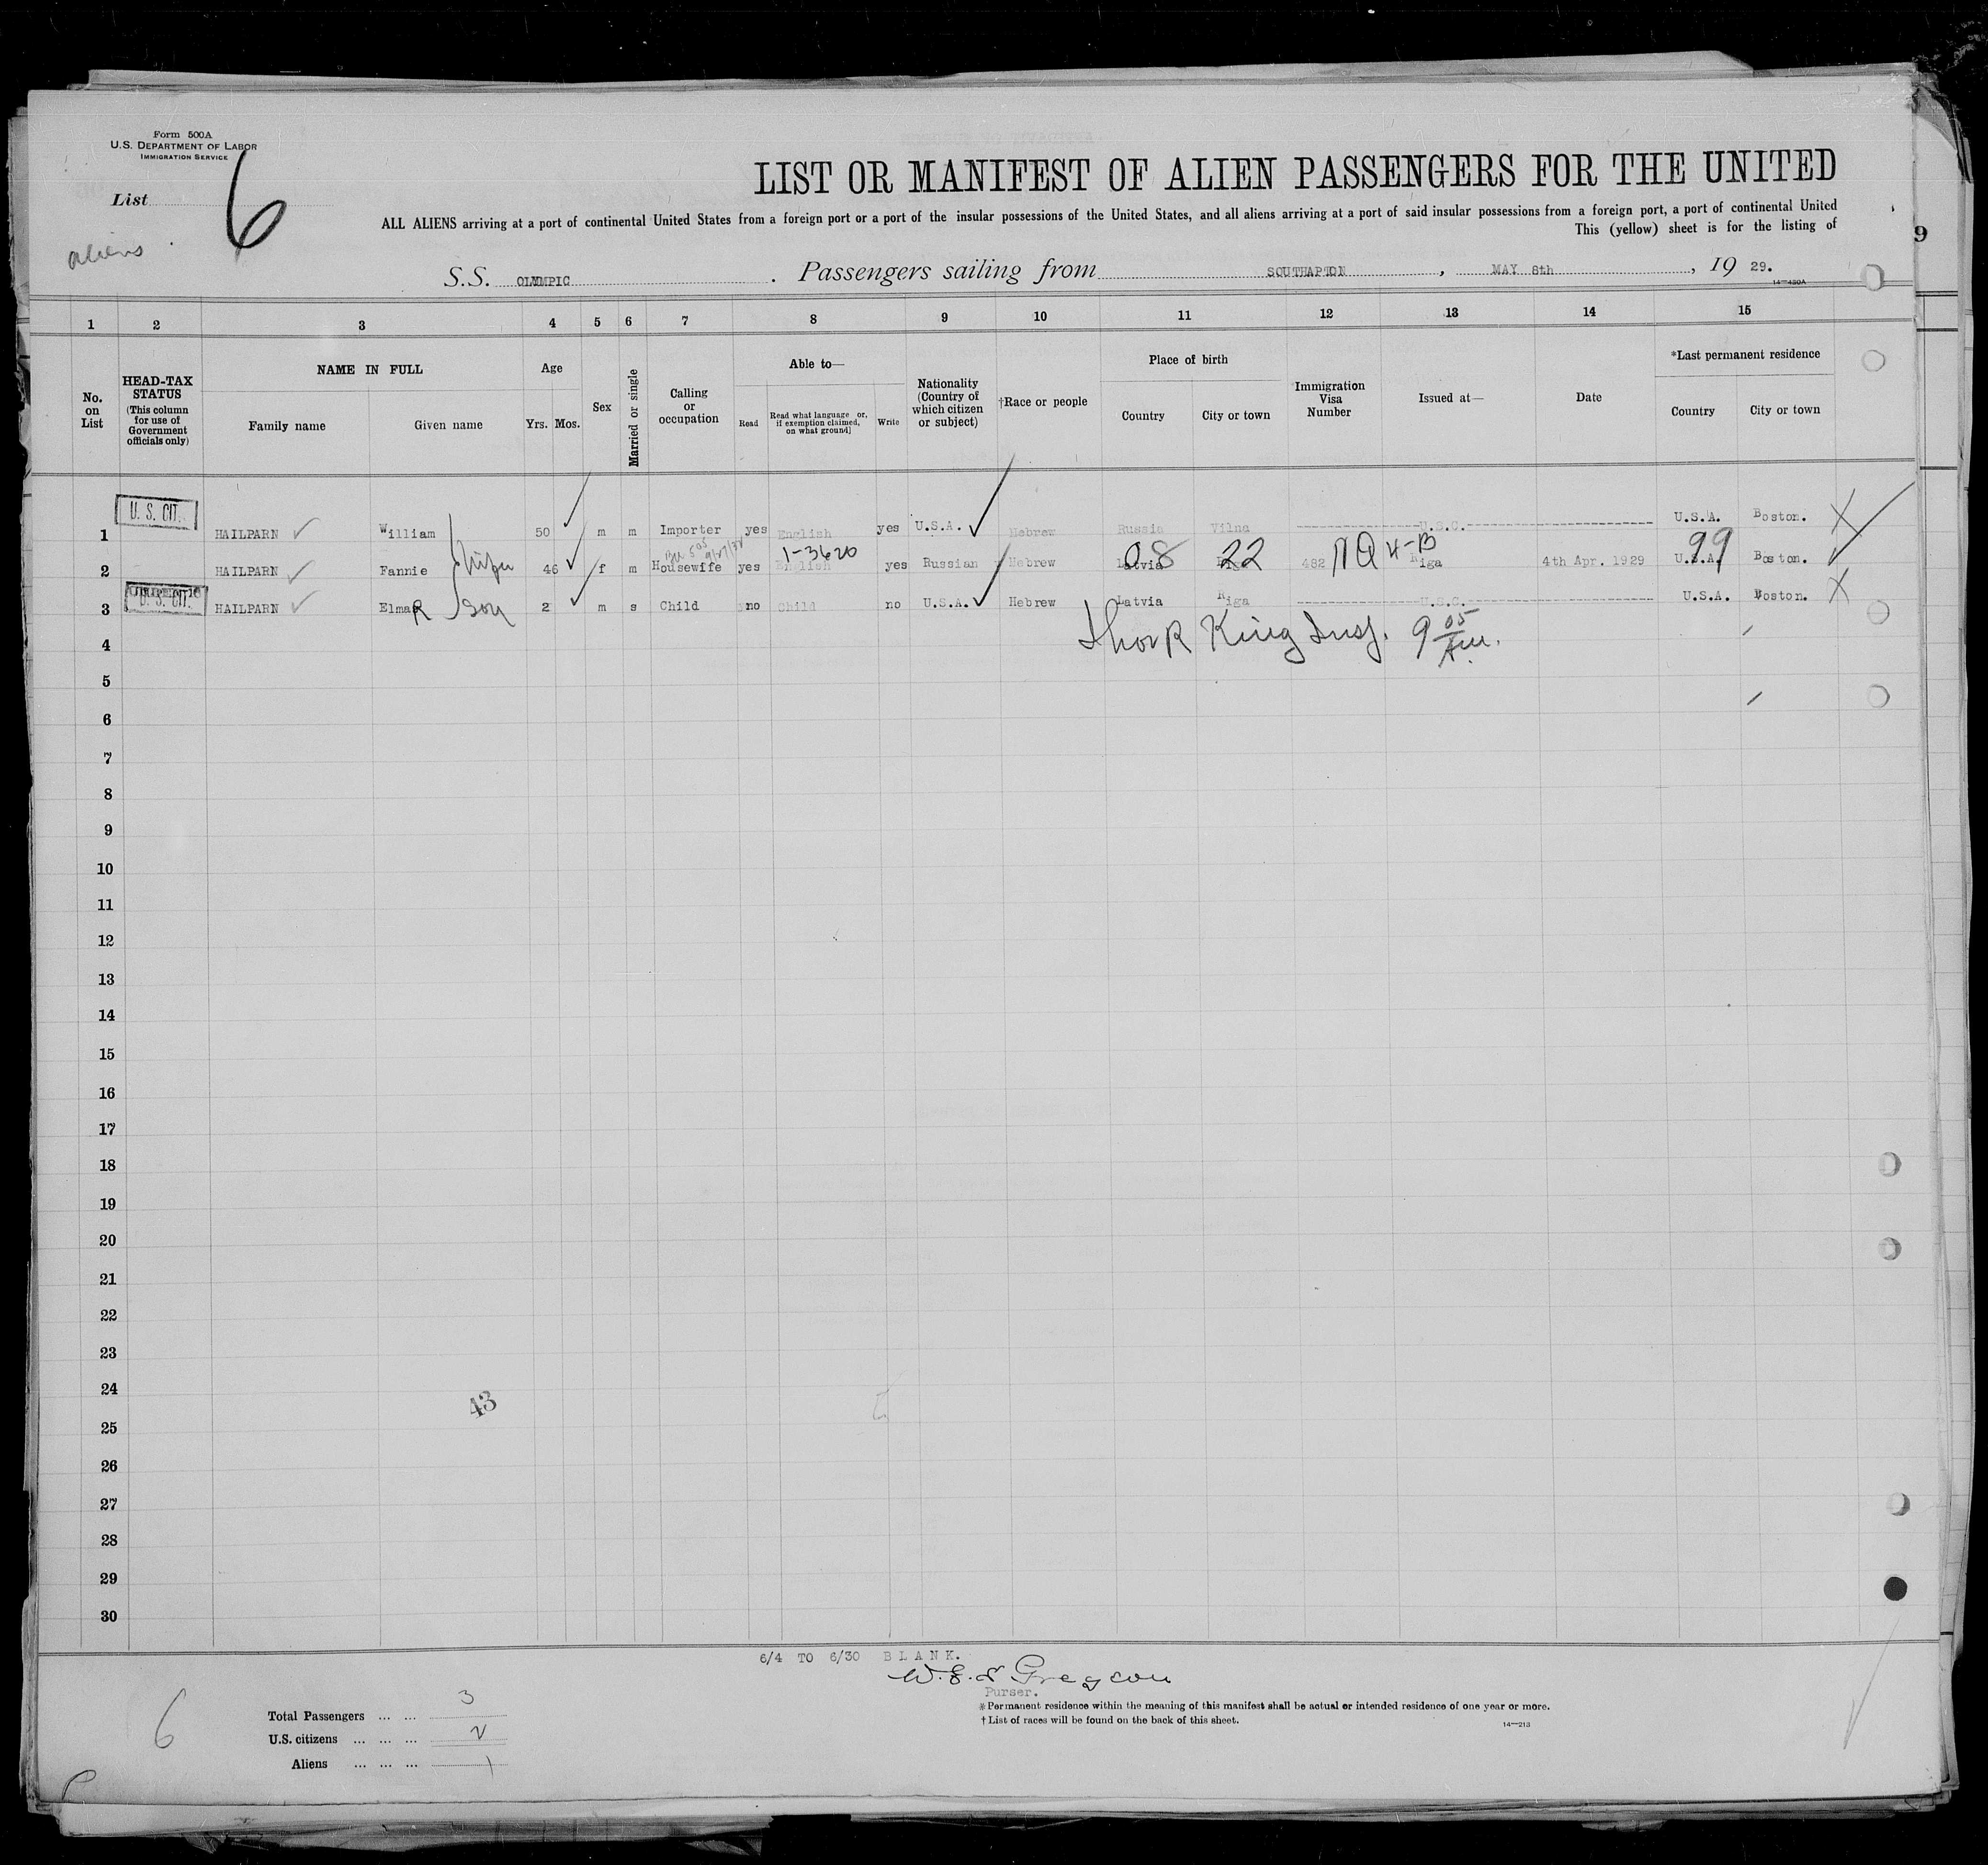 Form 500A
U.S. DEPARTMENT OF LABOR
IMMIGRATION SERVICE
List 6
aliens
LIST OR MANIFEST OF ALIEN PASSENGERS FOR THE UNITED
ALL ALIENS arriving at a port of continental United States from a foreign port or a port of the insular possessions of the United States, and all aliens arriving at a port of said insular possessions from a foreign port, a port of continental United
This (yellow) sheet is for the listing of
9
S.S. OLYMPIC. Passengers sailing from SOUTHAPTON, MAY 8th, 19 29.
14—430A
1 2 3 4 5 6 7 8 9 10 11 12 13 14 15
No. on List
HEAD-TAX STATUS (This column for use of Government officials only)
NAME IN FULL
Family name Given name
Age
Yrs. Mos.
Sex
Married or single
Calling or occupation
Able to—
Read
Read what language or, if exemption claimed, on what ground]
Write
Nationality (Country of which citizen or subject)
†Race or people
Place of birth
Country City or town
Immigration Visa Number
Issued at—
Date
*Last permanent residence
Country City or town
1 U. S. CIT. HAILPARN William 50 m m Importer yes English yes U.S.A. Hebrew Russia Vilna U.S.C. U.S.A. Boston. X
9/27/38 1-3620 08 22 NQ 4-B 99
2 HAILPARN Fannie wife 46 f m Housewife yes English yes Russian Hebrew Latvia Riga 482 Riga 4th Apr. 1929 U.S.A. Boston.
3 U. S. CIT. HAILPARN ElmaR son 2 m s Child no Child no U.S.A. Hebrew Latvia Riga U.S.C. U.S.A. Boston. X
King Insp. 9 05 Am.
4
5
6
7
8
9
10
11
12
13
14
15
16
17
18
19
20
21
22
23
24
43
25
26
27
28
29
30
6/4 TO 6/30 BLANK.
Purser.
*Permanent residence within the meaning of this manifest shall be actual or intended residence of one year or more.
†List of races will be found on the back of this sheet.
14—213
6
Total Passengers ... ... 3
U.S. citizens ... ... ... 2
Aliens ... ... ... 1